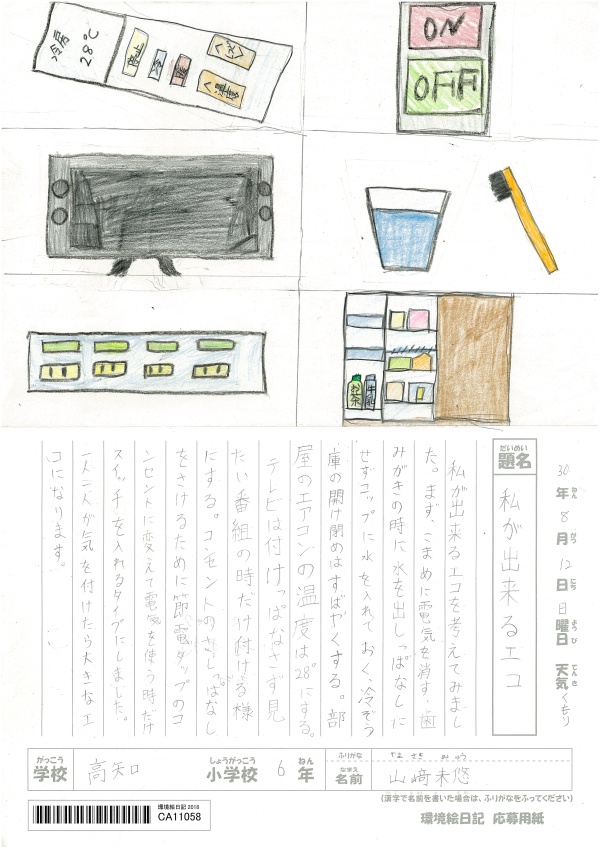 冷房
28℃
停止
冷
暖
ON
OFF
お茶
牛乳
30年ねん8月がつ12日にち日曜日ようび 天気てんきくもり
題名だいめい
私が出来るエコ
私が出来るエコを考えてみまし
た。まず、こまめに電気を消す・歯
みがきの時に水を出しっぱなしに
せずコップに水を入れておく、冷ぞう
庫の開け閉めはすばやくする。部
屋のエアコンの温度は28°にする。
テレビは付けっぱなさず見
たい番組の時だけ付ける様
にする。コンセントのさしっぱなし
をさけるために節電タップのコ
ンセントに変えて電気を使う時だけ
スイッチを入れるタイプにしました。
一人一人が気を付けたら大きなエ
コになります。
がっこう
学校 高知
しょうがっこう
小学校 6
ねん
年
ふりがな やま さき み ゆう
なまえ
名前 山﨑未悠
(漢字で名前を書いた場合は、ふりがなをふってください)
環境絵日記 2018
CA11058
環境絵日記 応募用紙